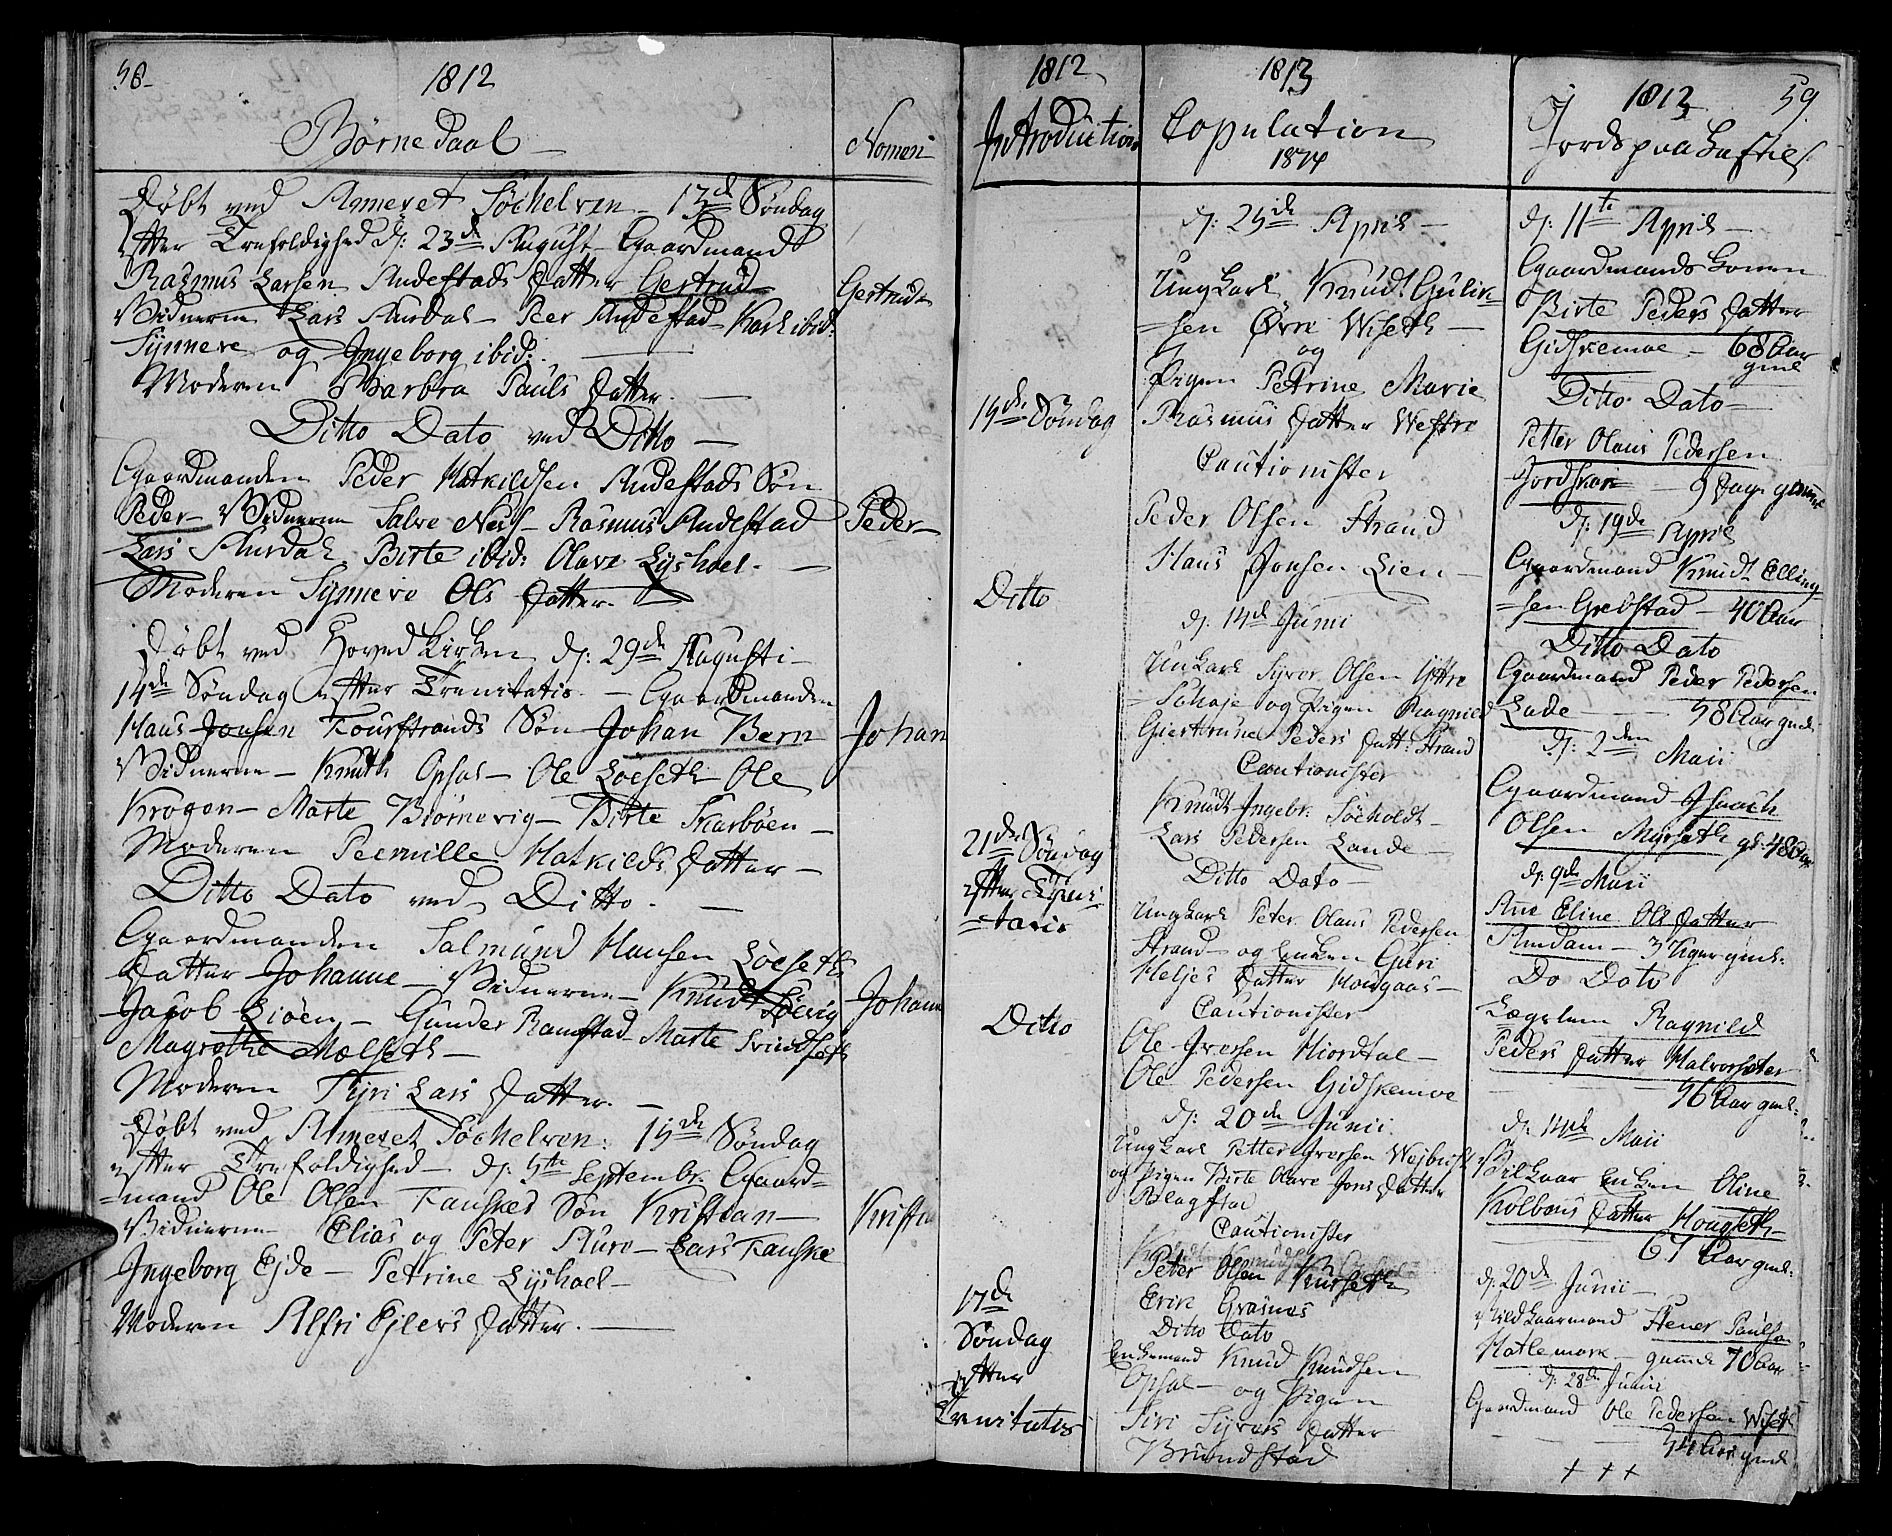 58.
1812
Børne Daab
Nomen
Døbt ved Ameret Søchelven 13de Søndag
Efter Trefoldighed d: 23de August Gaardmand
Rasmus Larsen Andestads Datter Gertrud
Gertrud
Vidnerne Lars Aursdal Peer Andestad ibid:
Synneve og Ingeborg ibid:
Moderen Barbra Pauls Datter.
Ditto Dato ved Ditto
Gaardmanden Peder Hatkildsen Andestads Søn
Peder Vidnerne Salve Rasmus Andestad
Peder
Lars Aursdal Birte ibid: Olave Lyshoel.
Moderen Synneve Ols Datter.
Døbt ved Hoved Kirken d: 29de Augusti
14de Søndag efter Trinitatis. Gaardmanden
Hans Jonsen Tourstrands Søn Johan Bern
Johan
Vidnerne Knuth Opsal Ole Løeseth Ole
Krogen Marte Biørnevig Birte Skarbøen
Moderen Pernille Hatkilds Datter
Ditto Dato ved Ditto.
Gaardmanden Salmund Hansen Løeseth
Datter Johanne Vidnerne Knud Løevig
Johanne
Jacob Liøen Gunder Ramstad Marte Svindseth
Magrethe Melseth
Moderen Siri Lars Datter.
Døbt ved Ameret Søchelven: 15de Søndag
efter Trefoldighed d: 5te Septembr. Gaard=
=mand Ole Olsen Fauskes Søn Kristian
Kristia
Vidnerne Elias og Peter Aure Lars Fauske
Ingeborg Ejde Petrine Lyshoel
Moderen Alfri Ejlers Datter.
1812
Introduction
15de Søndag
Ditto
21de Søndag
efter Trini
=tatis
Ditto
17de
Søndag
efter
Trinitatis
1813
Copulation
1814
d: 25de April
Ung Karl Knudt Gulik=
=sen Øvre Wiseth
og
Pigen Petrine Marie
Rasmus Datter Westre
Cautionister
Peder Olsen Strand
Hans Jonsen Lien
d: 14de Junii
Ung Karl Syver Olsen Yttre
Schoje og Pigen Ragnild
Giertrune Peders Datt: Strand
Cautionister
Knudt Ingebr: Søeholdt
Lars Pedersen Lande
Ditto Dato
Ung Karl Peter Olaus Pedersen
Strand og Enken Guri
Heljes Datter Hougaas
Cautionister
Ole Iversen Hiordtal
Ole Pedersen Gidskemoe
d: 20de Junii
Ung Karl Petter Iversen
og Pigen Birte Olave Jons Datter
Blagstad
Cautionister
Peter Olsen Kurseth
Erik Grasnes
Ditto Dato
Enkemand Knud Knudsen
Opsal og Pigen
Siri Syvers Datter
Brundstad
1813
59.
Jords paa Kastelse
d: 11te April
Gaardmands Konen
Birte Peders Datter
Gidskemoe 68 Aar
gml
Ditto Dato
Petter Olaus Pedersen
9 Dage gammel
d: 19de April
Gaardmand Knudt Elling=
=sen Grebstad 40 Aar
Ditto Dato
Gaardmand Peder Pedersen
Lade 58 Aar gml.
d: 2den Maii
Gaardmand Isaach
Olsen Myrseth gl: 48 Aar
d: 9de Maii
Ane Eline Ole Datter
Amdam 3 Uger gml.
Do Dato
Lægslem Ragnild
Peders Datter Halvorsæter
56 Aar gml:
d: 14de Maii
Vilkaar Enken Oline
Kolbens Datter Hougseth
67 Aar gml:
d: 20de Junii
Vilkaarmand Stener Paulsen
Hatlemark gamel 70 Aar
d: 28de Junii
Gaardmand Ole Pedersen Wiseth
54 Aar gml
+ + +